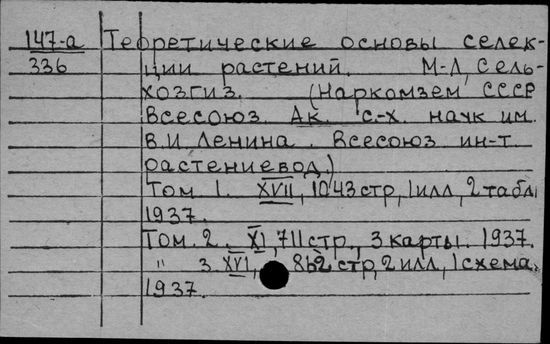 147-а Теоретические основы селек-
336 ции растений. М-Л, Сель-
хозгиз. (Наркомзем СССР
Всесоюз. Ак. с.-х. наук им.
В.И. Ленина. Всесоюз. ин-т.
растениевод.)
Том 1. XVII, 1043 стр, 1 илл, 2 табл
1937.
Том. 2. XI, 711 стр., 3 карты. 1937.
" 3. XVI, 862 стр, 2 илл, 1 схема.
1937.